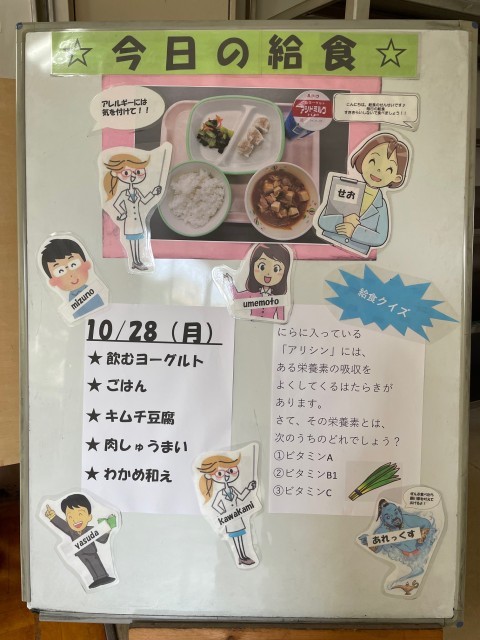 ☆今日の給食☆
アレルギーには
気を付けて！！
せお
mizuno
umemoto
給食クイズ
10/28（月）
★飲むヨーグルト
★ごはん
★キムチ豆腐
★肉しゅうまい
★わかめ和え
にらに入っている
「アリシン」には、
ある栄養素の吸収を
よくしてくるはたらきが
あります。
さて、その栄養素とは、
次のうちのどれでしょう？
①ビタミンA
②ビタミンB1
③ビタミンC
yasuda
kawakami
あれっくす